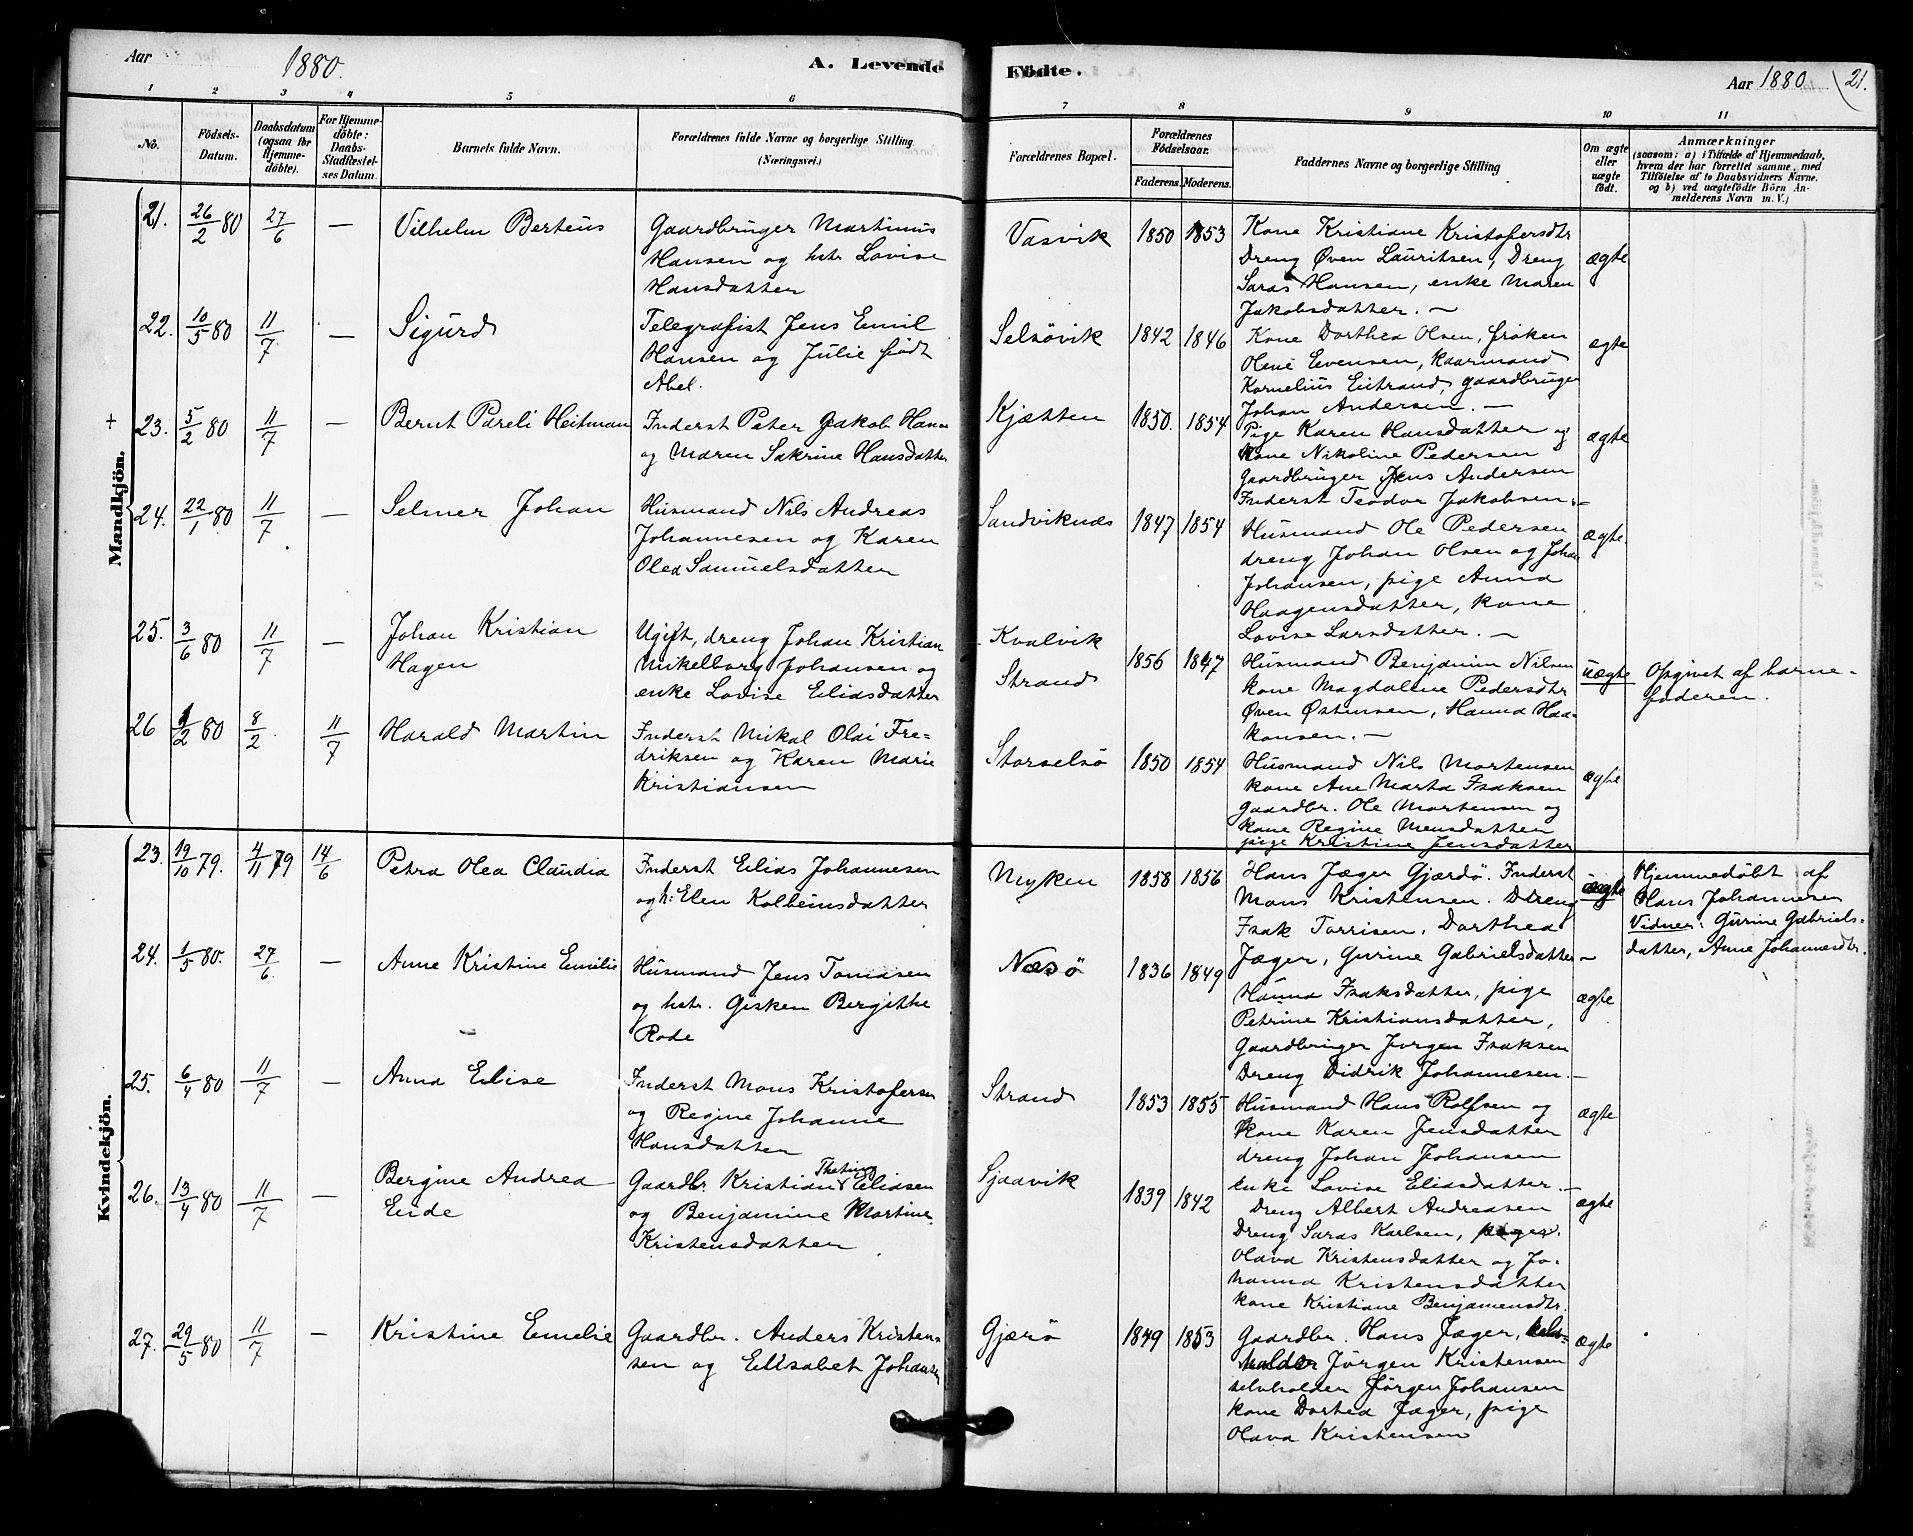 Aar 1880. A. Levende Födte. Aar 1880 21.
1 2 3 4 5 6 7 8 9 10 11
No.
Födsels-
Datum.
Daabsdatum
(ogsaa før
Hjemme-
döbte).
For Hjemme-
döbte:
Daabs-
Stadfæstel-
ses Datum.
Barnets fulde Navn.
Forældrenes fulde Navne og borgerlige Stilling
(Næringsvei.)
Forældrenes Bopæl.
Forældrenes
Födselsaar.
Faderens. Moderens.
Faddernes Navne og borgerlige Stilling
Om ægte
eller
uægte
födt.
Anmærkninger
(saasom: a) i Tilfælde af Hjemmedaab,
hvem der har forrettet samme, med
Tilföielse af to Daabsvidners Navne.
og b) ved uægtefödte Börn An-
melderens Navn m. V.)
Mandkjön.
21. 26/2 80 27/6 — Vilhelm Berteus
Gaardbruger Martinus
Hansen og hstr Lovise
Hansdatter
Vasvik 1850 1853
Kone Kristiane Kristofersdtr
Dreng Øven Lauritsen, Dreng
Saras Hansen, enke Maren
Jakobsdatter. —
ægte
22. 10/5 80 11/7 — Sigurd
Telegrafist Jens Emil
Hansen og Julie født
Abel.
Selsøvik 1842 1846
Kone Dorthea Olsen, frøken
Oline Evensen, Kaarmand
Kornelius Eitrand, gaardbruger
Johan Andersen. —
ægte
+ 23. 5/2 80 11/7 — Bernt Pareli Heitman
Inderst Peter Jakob Hans
og Maren Sakrine Hansdatter
Kjætten 1850. 1854
Pige Karen Hansdatter og
Kone Nikoline Pedersen
Gaardbruger Jens Andersen
Inderst Teodor Jakobsen. —
ægte
24. 22/1 80 11/7 — Selmer Johan
Husmand Nils Andreas
Johannesen og Karen
Olea Samuelsdatter
Sandviknæs 1847 1854
Husmand Ole Pedersen
dreng Johan Olsen og Johan
Johansen, pige Anna
Haagensdatter, kone
Lovise Larsdatter. —
ægte.
25. 3/6 80 11/7 — Johan Kristian
Hagen
Ugift, dreng Johan Kristian
Mikelborg Johansen og
enke Lovise Eliasdatter
Kvalvik
Strand
1856 1847
Husmand Benjamin Nilsen
kone Magdalene Pedersdtr
Øven Østensen, Hanna Haa-
konsen. —
uægte
Opgivet af barne-
faderen.
26 1/2 80 8/2. 11/7 Harald Martin
Inderst Mikal Olai Fre-
driksen og Karen Marie
Kristiansen
Storselsø 1850 1854
Husmand Nils Mortensen
kone Ane Marta Isaksen
Gaardbr. Ole Mortensen og
kone Regine Mensdatter
pige Kristine Jensdatter
ægte
Kvindekjön.
23. 19/10 79. 4/11 79 14/6 Petra Olea Claudia
Inderst Elias Johannesen
og h: Elen Kolbeinsdatter
Myken 1858 1856
Hans Jæger Gjærdø. Inderst
Mons Kristensen. Dreng
Isak Torrisen, Dorthea
Jæger, Gurine Gabrielsdatter —
Hjemmedøbt af
Hans Johannesen
Vidner: Gurine Gabriels-
datter, Anne Johannesdtr.
24. 1/5 80. 27/6 — Anne Kristine Emilie
Husmand Jens Tomasen
og hstr. Gisken Bergitte
Rode
Næsø 1836 1849
Hanna Isaksdatter, pige
Petrine Kristiansdatter,
Gaardbruger Jørgen Isaksen
Dreng Didrik Johannesen. —
ægte
25. 6/4 80 11/7 — Anna Elise
Inderst Mons Kristofersen
og Regine Johanne
Hansdatter
Strand 1853 1855
Husmand Hans Rolfsen og
Kone Karen Jensdatter
dreng Johan Johansen
enke Lovise Eliasdatter. —
ægte
26. 13/4 80 11/7 — Bergine Andrea
Ende
Gaardbr Kristian Eliasen
og Benjamine Martine
Kristensdatter
Sjaavik 1839 1842
Dreng Albert Andreasen
Dreng Saras Karlsen, piger.
Olava Kristensdatter og Jo-
hanna Kristensdatter
kone Kristiane Benjamensdtr.
ægte
27. 29/5 80 11/7 — Kristine Emelie
Gaardbr. Anders Kristen
sen og Elisabet Johansen
Gjærø 1849 1853
Gaardbr. Hans Jæger, selv-
holder Jörgen Kristensen
selvholder Jörgen Johansen
kone Dortea Jæger, pige
Olava Kristensen
ægte